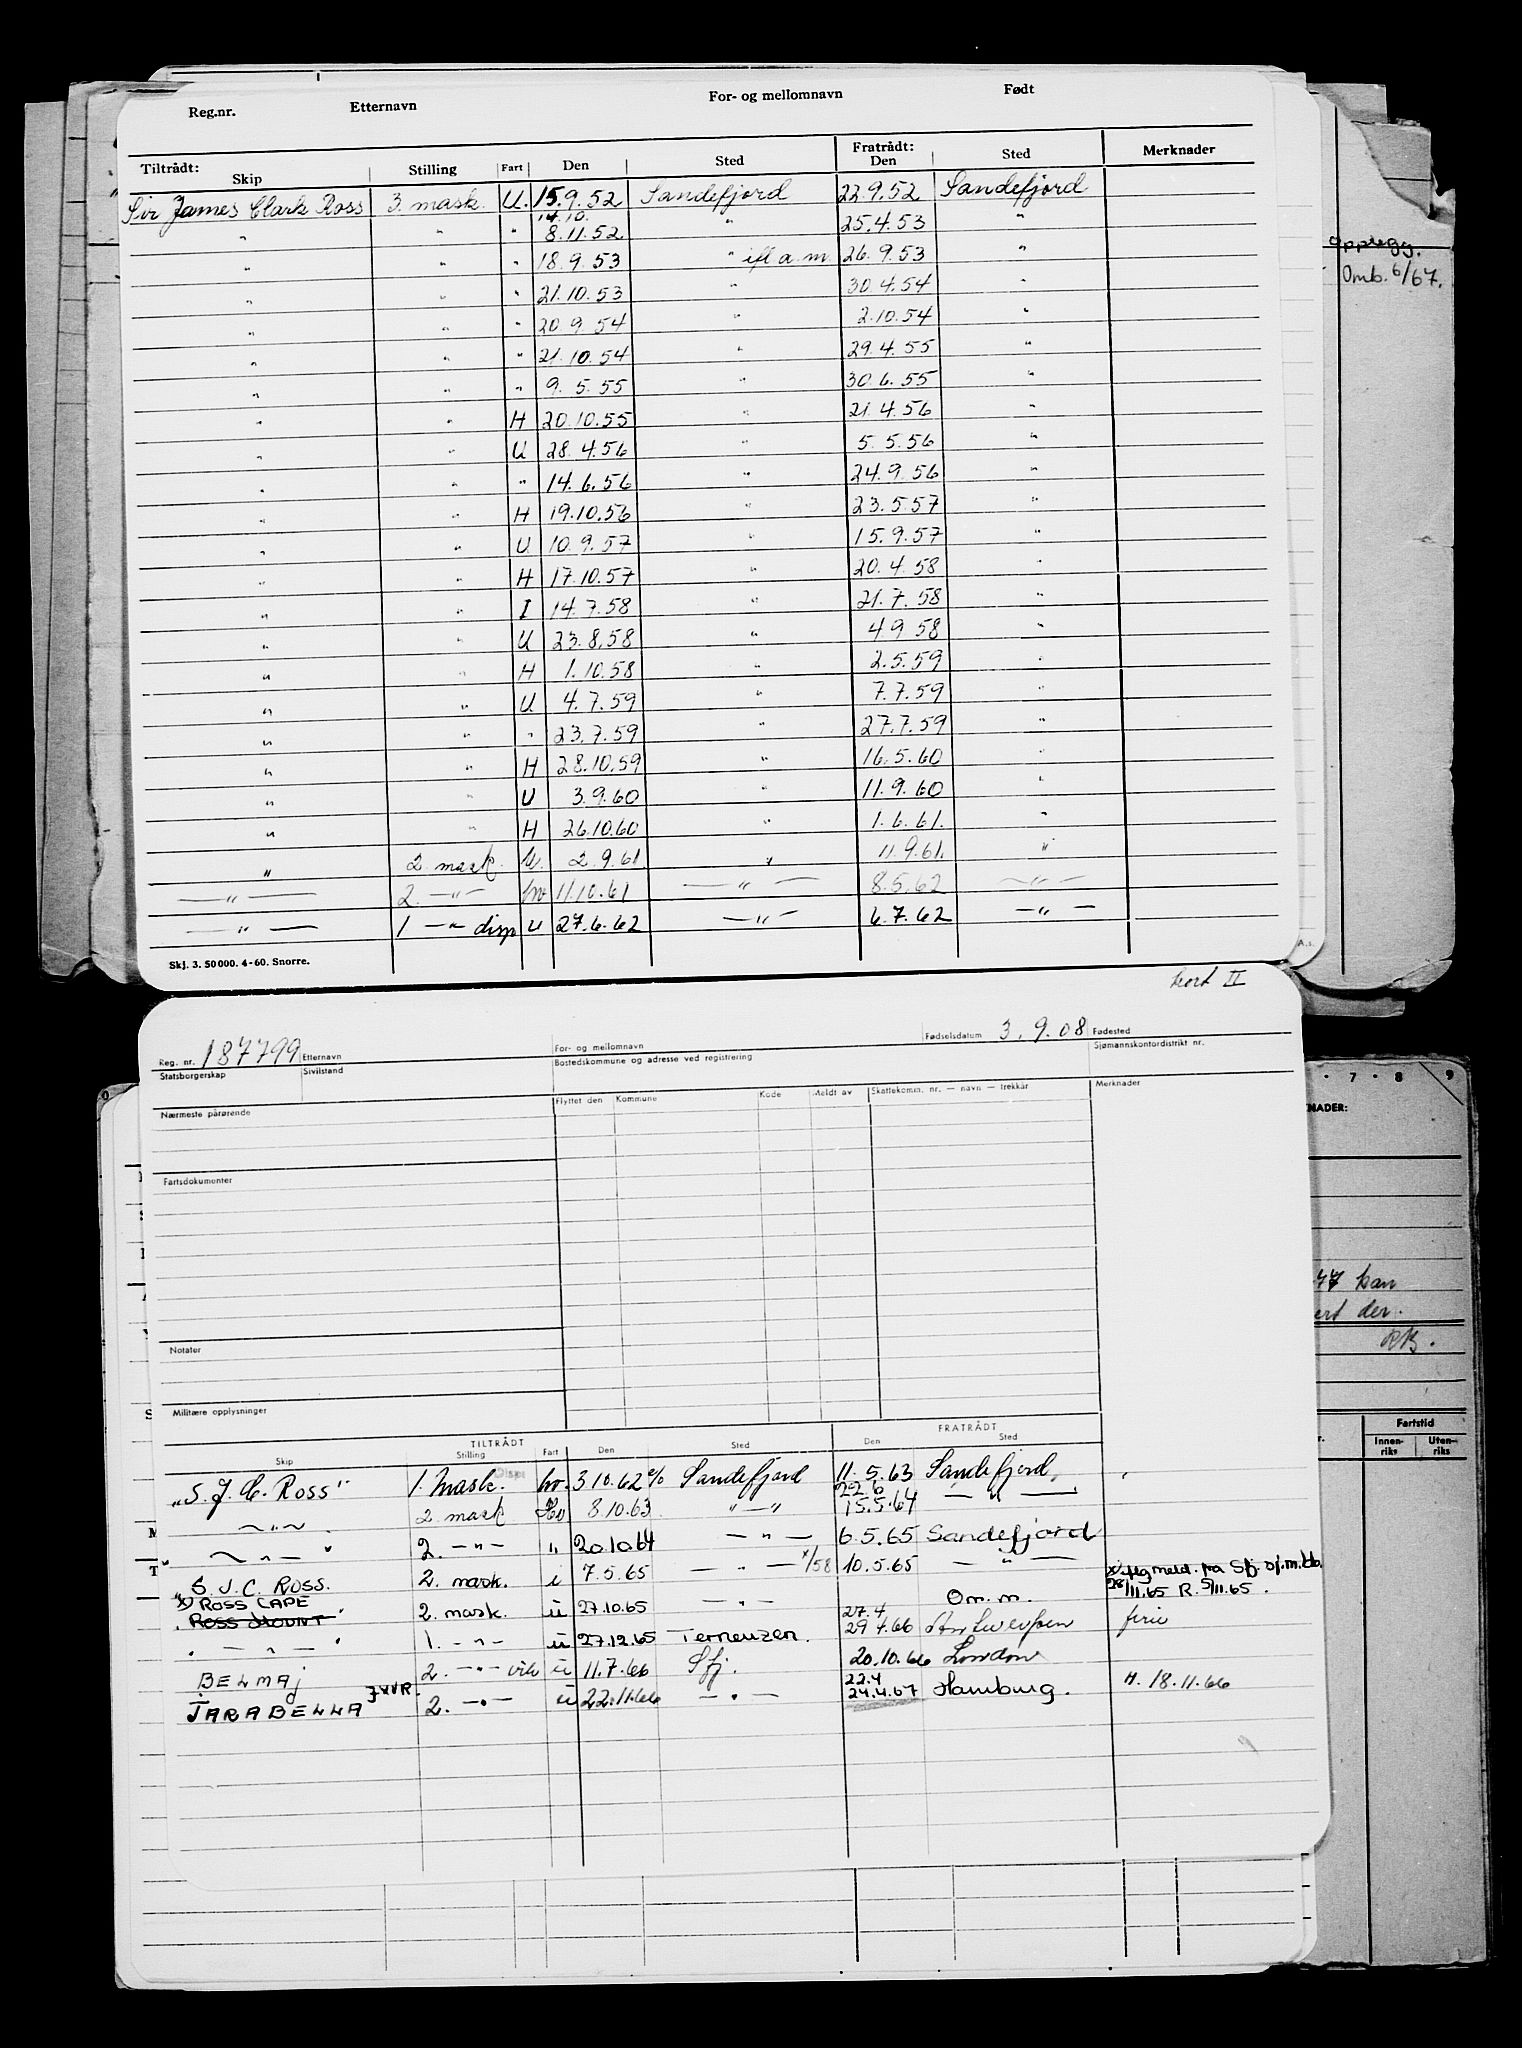 Reg.nr. Etternavn For- og mellomnavn Født
Tiltrådt: Skip Stilling Fart Den Sted Fratrådt: Den Sted Merknader
Sir James Clark Ross 3. mask. U. 15.9.52 Sandefjord 22.9.52 Sandefjord
14.10.
" " " 8.11.52 " 25.4.53 "
" " " 18.9.53 " ifl a.m. 26.9.53 "
" " " 21.10.53 " 30.4.54 "
" " " 20.9.54 " 2.10.54 "
" " " 21.10.54 " 29.4.55 "
" " " 9.5.55 " 30.6.55 "
" " H 20.10.55 " 21.4.56 "
" " U 28.4.56 " 5.5.56 "
" " " 14.6.56 " 24.9.56 "
" " H 19.10.56 " 23.5.57 "
" " U 10.9.57 " 15.9.57 "
" " H 17.10.57 " 20.4.58 "
" " I 14.7.58 " 21.7.58 "
" " U 23.8.58 " 4 9 58 "
" " H 1.10.58 " 2.5.59 "
" " U 4.7.59 " 7.7.59 "
" " " 23.7.59 " 27.7.59 "
" " H 28.10.59 " 16.5.60 "
" " U 3.9.60 " 11.9.60 "
" " H 26.10.60 " 1.6.61. "
" 2. mask. U. 2.9.61 " 11.9.61. "
— " — 2. — " — hv 11.10.61 — " — 8.5.62 — " —
— " — 1 — " — disp U 27.6.62 — " — 6.7.62 — " —
Skj. 3. 50 000. 4-60. Snorre.
A.s.
opplegg.
Omb. 6/67.
kort II
Reg. nr. 187799 Etternavn For- og mellomnavn Fødselsdatum 3.9.08 Fødested
Statsborgerskap Sivilstand Bostedskommune og adresse ved registrering Sjømannskontordistrikt nr.
Nærmeste pårørende Flyttet den Kommune Kode Meldt av Skattekomm. nr. — navn — trekkår Merknader
Fartsdokumenter
Notater
Militære opplysninger
TILTRÅDT FRATRÅDT
Skip Stilling Fart Den Sted Den Sted
"S. J. C. Ross" 1. Mask. Disp. hv. 3.10.62 % Sandefjord 11.5.63 Sandefjord.
22.6
— " — 2. mask Hv 8.10.63 " — " 15.5.64 — " —
" — " — " 2. — " — " 20.10.64 — " — 6.5.65 Sandefjord
"S. J. C. ROSS. 2. mask. i 7.5.65 — " — x/58 10.5.65 — " —
x) ROSS CAPE
ROSS MOUNT " 2. mask. ü 27.10.65 — " — Om. m.
28/11.65 R. 5/11.65.
27.4
" — " — " 1. — " — ü 27.12.65 Terneuzen. 29.4.66 Antwerpen ferie
BELMAJ 2. — " — vik ü 11.7.66 Sfj. 20.10.66 London
22.4
JARABELLA JXVR 2. — " — ü 22.11.66 — " — 24.4.67 Hamburg. H. 18.11.66
7 • 8 • 9
NADER:
kan
der.
RB.
Fartstid
Innen-riks Uten-riks